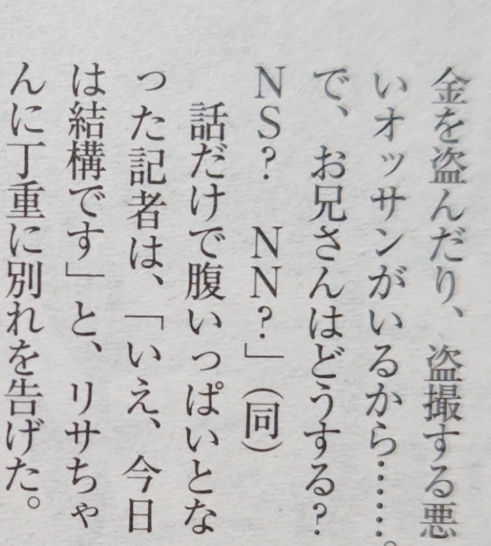 金を盗んだり、盗撮する悪
いオッサンがいるから……。
で、お兄さんはどうする？
ＮＳ？　ＮＮ？」（同）
　話だけで腹いっぱいとな
った記者は、「いえ、今日
は結構です」と、リサちゃ
んに丁重に別れを告げた。